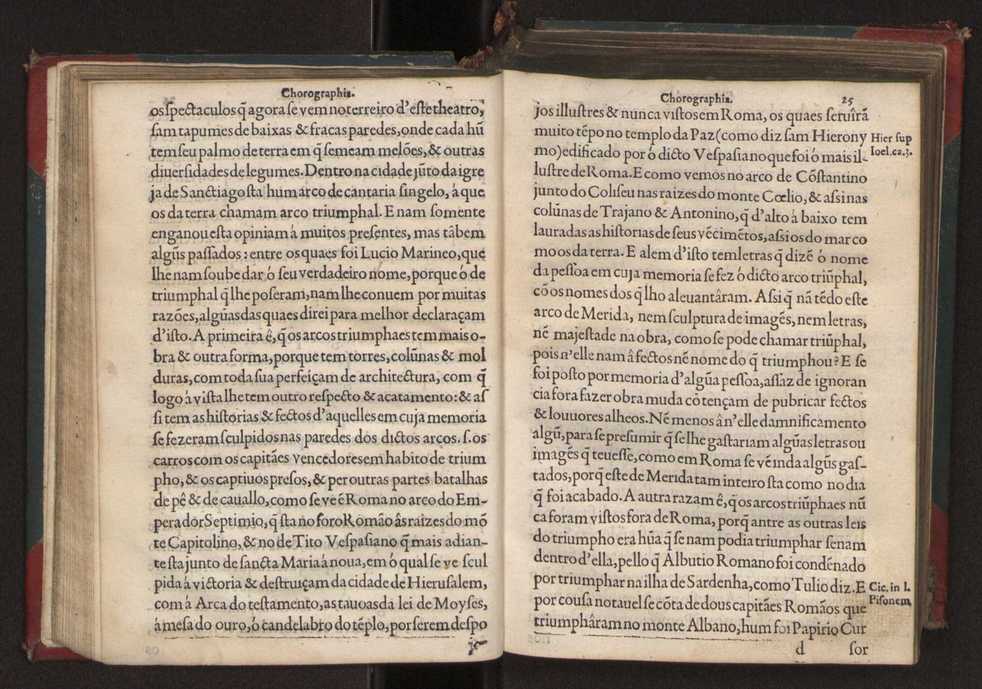 Chorographia.
os spectaculos q̃ agora se vem no terreiro d'este theatro,
sam tapumes de baixas & fracas paredes, onde cada hũ
tem seu palmo de terra em q̃ semeam melões, & outras
diuersidades de legumes. Dentro na cidade jũto da igre
ja de Sanctiago sta hum arco de cantaria singelo, à que
os da terra chamam arco triumphal. E nam somente
enganou esta opiniam à muitos presentes, mas tãbem
algũs passados: entre os quaes foi Lucio Marineo, que
lhe nam soube dar ó seu verdadeiro nome, porque ó de
triumphal q̃ lhe poseram, nam lhe conuem por muitas
razões, algũas das quaes direi para melhor declaraçam
d'isto. A primeira ê, q̃ os arcos triumphaes tem mais o-
bra & outra forma, porque tem torres, colũnas & mol
duras, com toda sua perfeiçam de architectura, com q̃
logo à vista lhe tem outro respecto & acatamento: & as
si tem as historias & fectos d'aquelles em cuja memoria
se fezeram sculpidos nas paredes dos dictos arcos. s. os
carros com os capitães vencedores em habito de trium
pho, & os captiuos presos, & per outras partes batalhas
de pê & de cauallo, como se ve ẽ Roma no arco do Em-
perador Septimio, q̃ sta no foro Romão âs raizes do mõ
te Capitolino, & no de Tito Vespasiano q̃ mais adian-
te sta junto de sancta Maria à noua, em ó qual se ve scul
pida à victoria & destruiçam da cidade de Hierusalem,
com à Arca do testamento, as tauoas da lei de Moyses,
à mesa do ouro, ó candelabro do tẽplo, por serem despo
jo
Chorographia. 25
jos illustres & nunca vistos em Roma, os quaes seruirã
muito tẽpo no templo da Paz (como diz sam Hierony
mo) edificado por ó dicto Vespasiano que foi ó mais il-
lustre de Roma. E como vemos no arco de Cõstantino
junto do Coliseu nas raizes do monte Cœlio, & assi nas
colũnas de Trajano & Antonino, q̃ d'alto à baixo tem
lauradas as historias de seus vẽcimẽtos, assi os do marco
mo os da terra. E alem d'isto tem letras q̃ dizẽ ó nome
da pessoa em cuja memoria se fez ó dicto arco triũphal,
cõ os nomes dos q̃ lho aleuantâram. Assi q̃ nã tẽdo este
arco de Merida, nem sculptura de imagẽs, nem letras,
nẽ majestade na obra, como se pode chamar triũphal,
pois n'elle nam â fectos nẽ nome do q̃ triumphou? E se
foi posto por memoria d'algũa pessoa, assaz de ignoran
cia fora fazer obra muda cõ tençam de pubricar fectos
& louuores alheos. Nẽ menos â n'elle damnificamento
algũ, para se presumir q̃ se lhe gastariam algũas letras ou
imagẽs q̃ teuesse, como em Roma se vẽ inda algũs gas-
tados, porq̃ este de Merida tam inteiro sta como no dia
q̃ foi acabado. A autra razam ê, q̃ os arcos triũphaes nũ
ca foram vistos fora de Roma, porq̃ antre as outras leis
do triumpho era hũa q̃ se nam podia triumphar senam
dentro d'ella, pello q̃ Albutio Romano foi condẽnado
por triumphar na ilha de Sardenha, como Tulio diz. E
por cousa notauel se cõta de dous capitães Romãos que
triumphâram no monte Albano, hum foi Papirio Cur
d sor
Hier sup
Ioel. ca. 3.
Cic. in l.
Pisonem